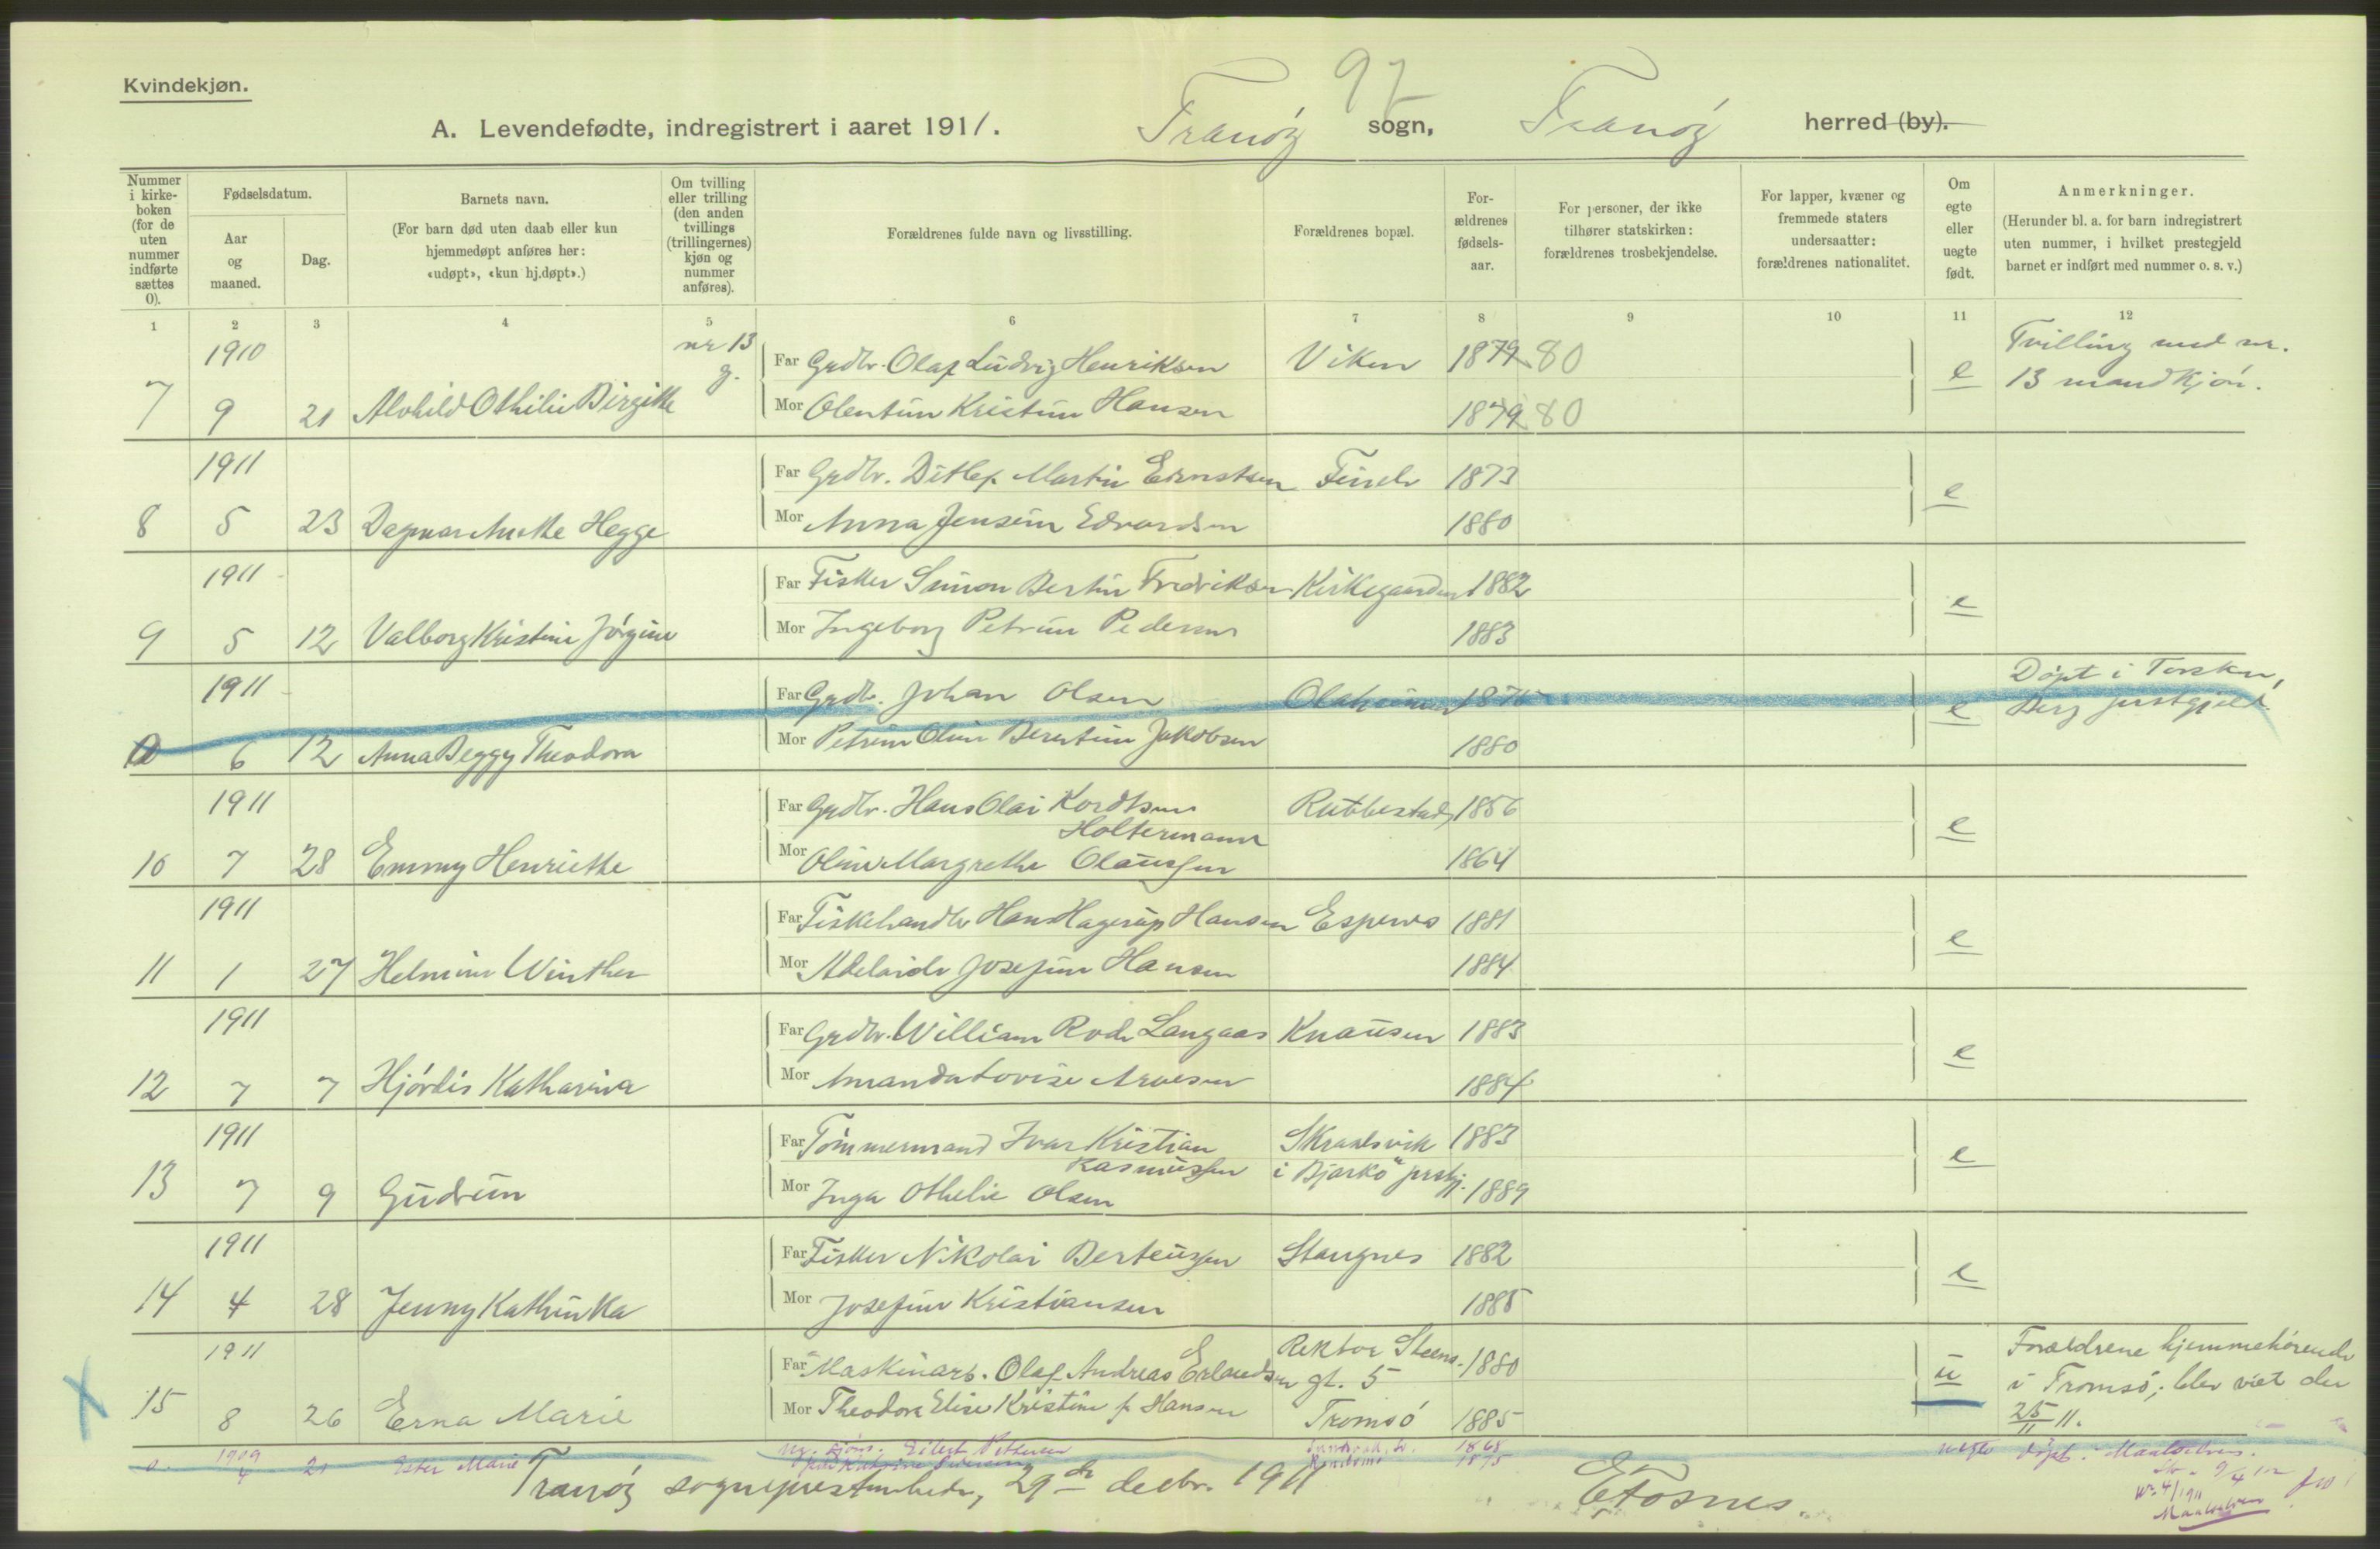 Kvindekjøn.
97
A. Levendefødte, indregistrert i aaret 1911. Tranöy sogn, Tranöy herred (by).
Nummer i kirkeboken (for de uten nummer indførte sættes 0).
Fødselsdatum.
Aar og maaned.
Dag.
Barnets navn.
(For barn død uten daab eller kun hjemmedøpt anføres her: «udøpt», «kun hj.døpt».)
Om tvilling eller trilling (den anden tvillings (trillingernes) kjøn og nummer anføres).
Forældrenes fulde navn og livsstilling.
Forældrenes bopæl.
Forældrenes fødselsaar.
For personer, der ikke tilhører statskirken: forældrenes trosbekjendelse.
For lapper, kvæner og fremmede staters undersaatter: forældrenes nationalitet.
Om egte eller uegte født.
Anmerkninger.
(Herunder bl. a. for barn indregistrert uten nummer, i hvilket prestegjeld barnet er indført med nummer o. s. v.)
1 2 3 4 5 6 7 8 9 10 11 12
1910 nr 13 g. Far Grdbr. Olaf Ludvig Henriksen Viken 1879 80 e Tvilling med nr.
13 mandkjön.
7 9 21 Alvhild Othilie Birgitte Mor Olentine Kristine Hansen 1879 80
1911 Far Grdbr. Ditlef Martin Ernstsen 1873 e
8 5 23 Dagmar Anette Hegge Mor Anna Jensine Edvardsen 1880
1911 Far Fisker Simon Bertin Fredriksen Kirkegaarden 1882 e
9 5 12 Valborg Kristine Jörgine Mor Ingeborg Petrine Pedersen 1883
1911 Far Grdbr. Johan Olsen Olaheimen 1875 e Döpt i Torsken,
Berg prestgjeld.
0 6 12 Anna Beggy Theodora Mor Petrine Oline Berntine Jakobsen 1880
1911 Far Grdbr. Hans Olai Kordtsen Rubbestad 1856 e
Holtermann
10 7 28 Emmy Henriette Mor Oline Margrethe Olaussen 1864
1911 Far Fiskehandler Hans Hagerup Hansen Espenes 1881 e
11 1 27 Helmine Winther Mor Adelaide Josefine Hansen 1884
1911 Far Grdbr. William Rode Langaas Knausen 1883 e
12 7 7 Hjördis Katharina Mor Amanda Lovise Arnesen 1884
1911 Far Tömmermand Ivar Kristian Skrolsvik 1883 e
Rasmussen i Bjarkö prstgj.
13 7 9 Gudrun Mor Inga Othelie Olsen 1889
1911 Far Fisker Nikolai Berteussen Stangnes 1882 e
14 4 28 Jenny Kathinka Mor Josefine Kristiansen 1885
1911 Far Maskinarb. Olaf Andreas Erlandsen Rektor Steens gt. 5 1880 u Forældrene hjemmehörende
i Tromsö; blev viet der
25/11 11.
15 8 26 Erna Marie Mor Theodora Elise Kristine f. Hansen Tromsö 1885
0. 1909 4 21 Ester Marie 1868 1875 uegte döpt i Maalselven.
Nr. 4/1911
Maalselven
Tranöy sogneprestembede, 29de decbr. 1911
E Fosnes.